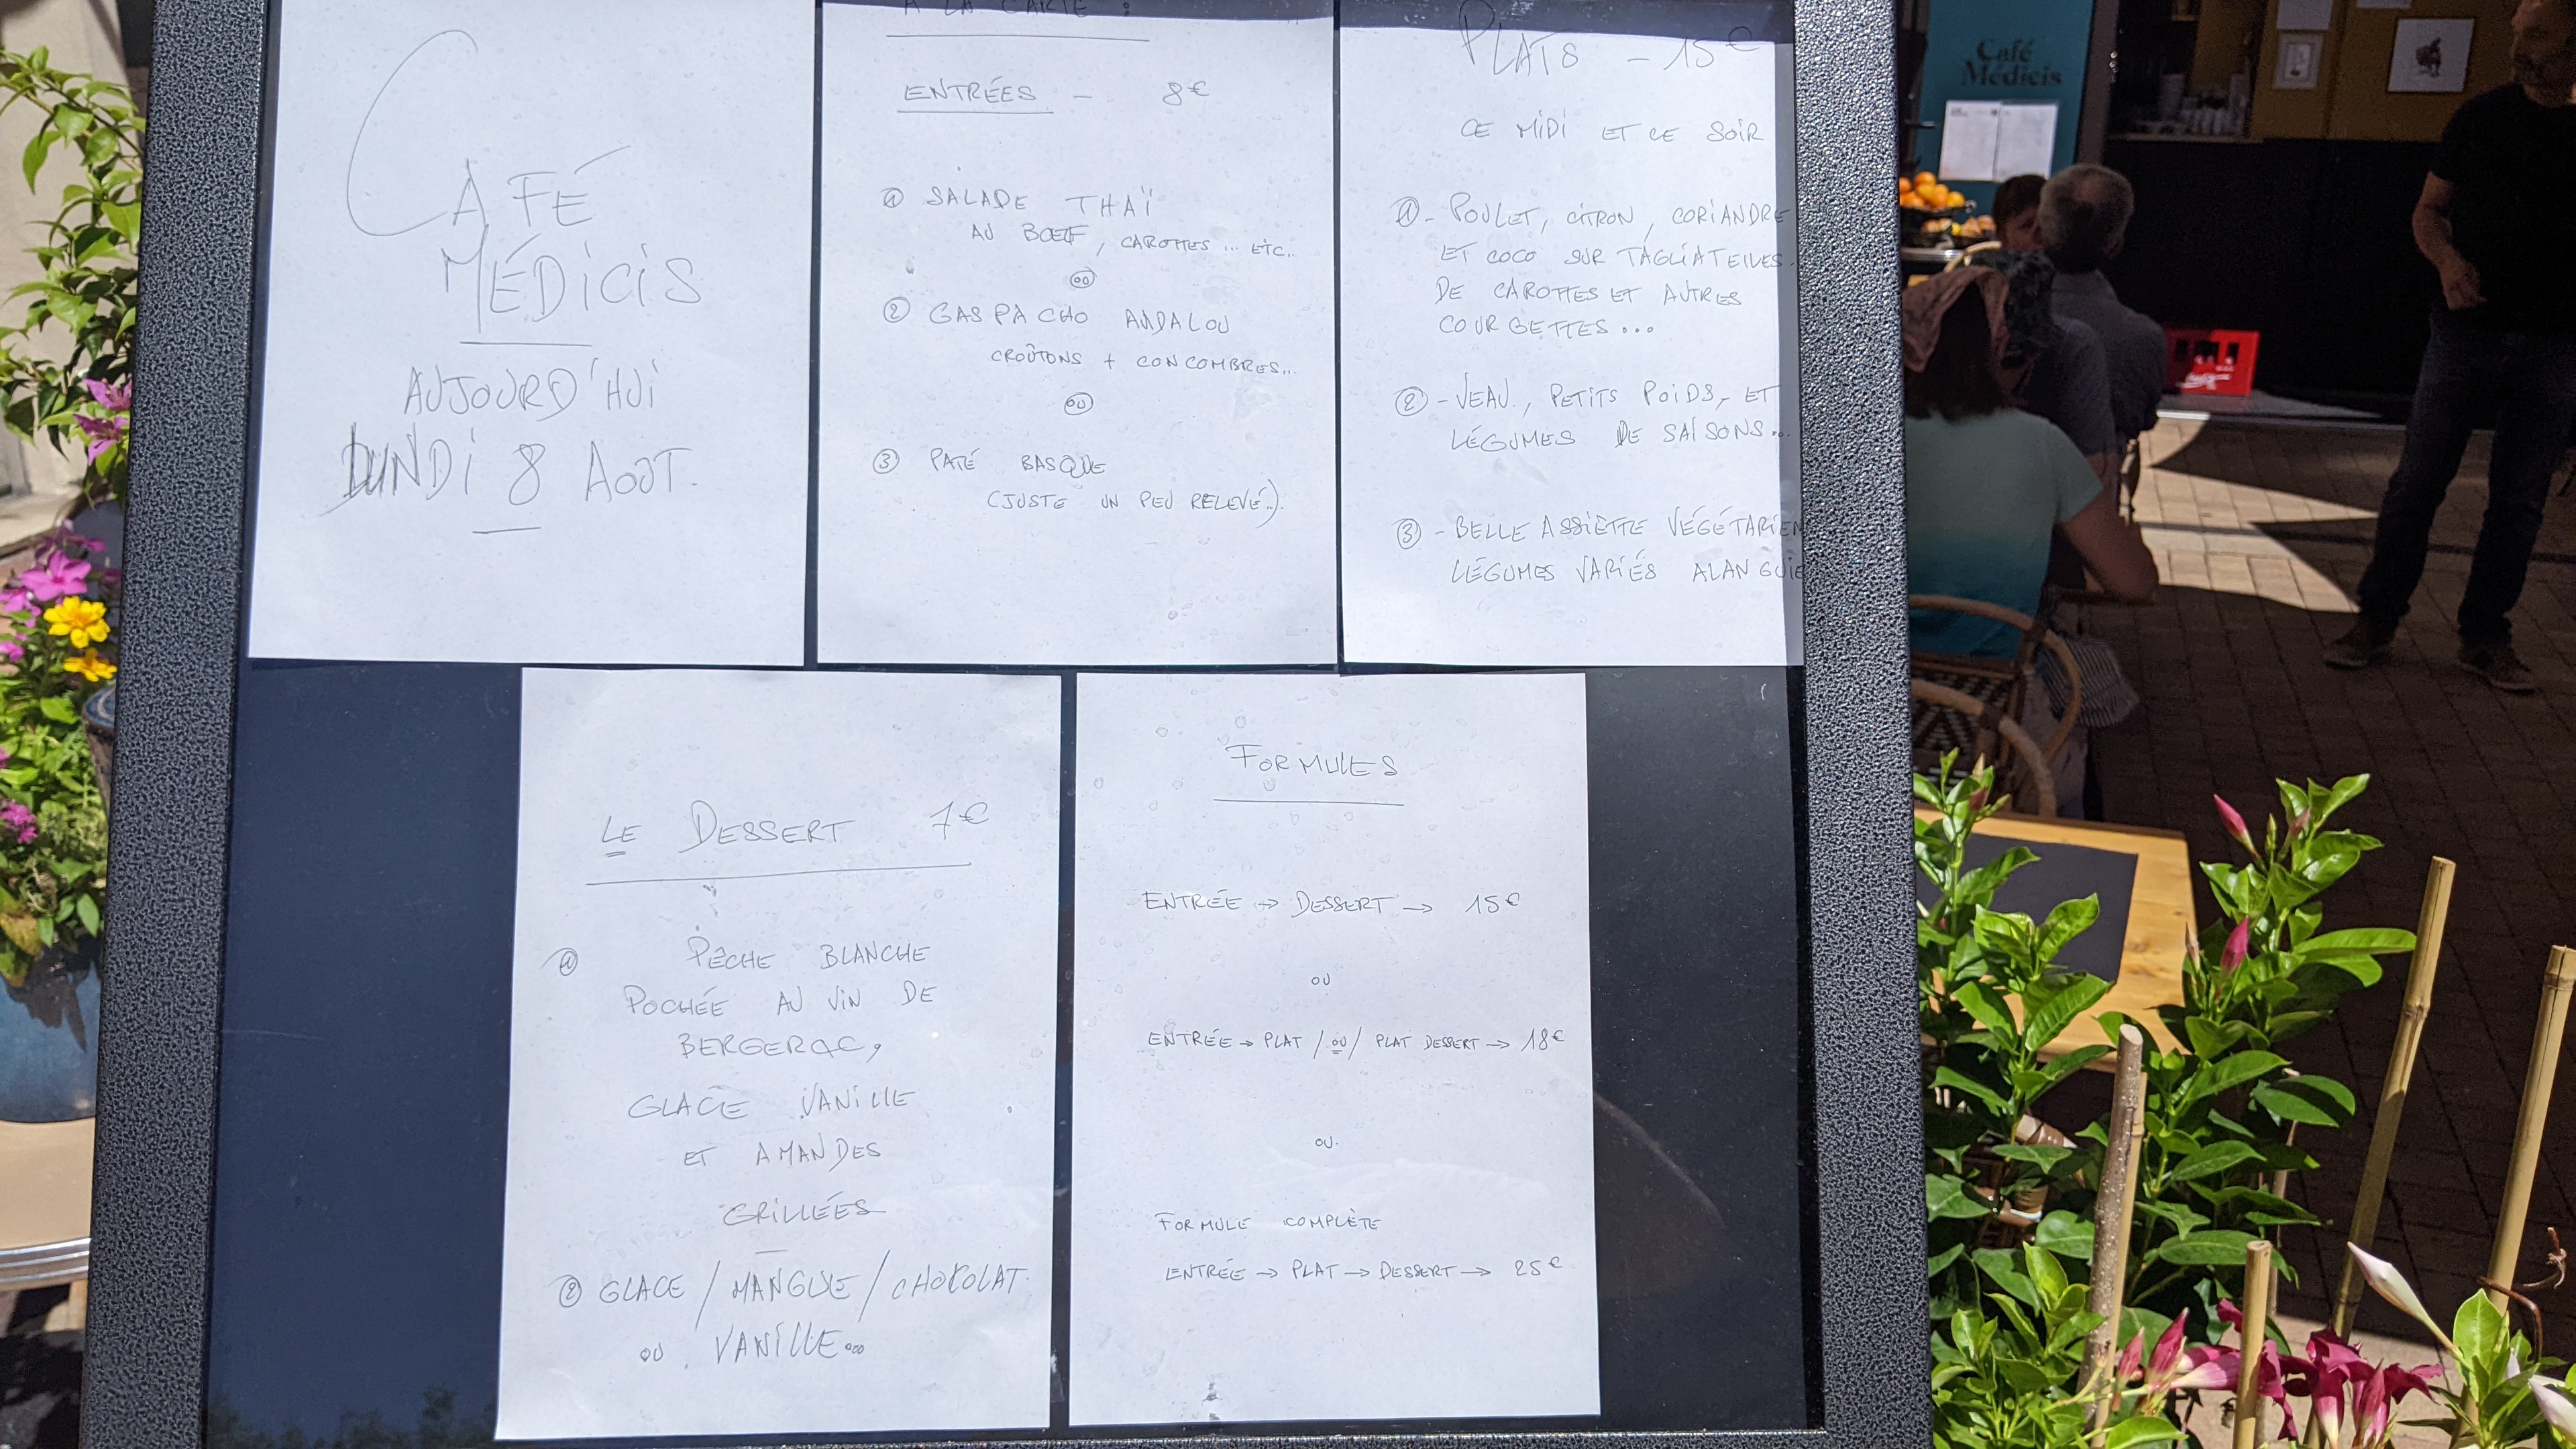 CAFÉ
MÉDICIS
AUJOURD'HUI
LUNDI 8 AOÛT.
A LA CARTE :
ENTRÉES - 8€
① SALADE THAÏ
AU BŒUF, CAROTTES... ETC..
OU
② GASPACHO ANDALOU
CROÛTONS + CONCOMBRES...
OU
③ PATÉ BASQUE
(JUSTE UN PEU RELEVÉ..).
PLATS - 15€
CE MIDI ET CE SOIR
① - POULET, CITRON, CORIANDRE
ET COCO SUR TAGLIATELLES.
DE CAROTTES ET AUTRES
COURGETTES...
② - VEAU, PETITS POIDS, ET
LÉGUMES DE SAISONS...
③ - BELLE ASSIETTE VÉGÉTARIEN
LÉGUMES VARIÉS ALANGUIE
LE DESSERT 7€
① PÊCHE BLANCHE
POCHÉE AU VIN DE
BERGERAC,
GLACE VANILLE
ET AMANDES
GRILLÉES
② GLACE / MANGUE / CHOCOLAT.
OU VANILLE...
FORMULES
ENTRÉE → DESSERT → 15€
OU
ENTRÉE → PLAT / OU / PLAT DESSERT → 18€
OU.
FORMULE COMPLÈTE
ENTRÉE → PLAT → DESSERT → 25€
Café
Médicis